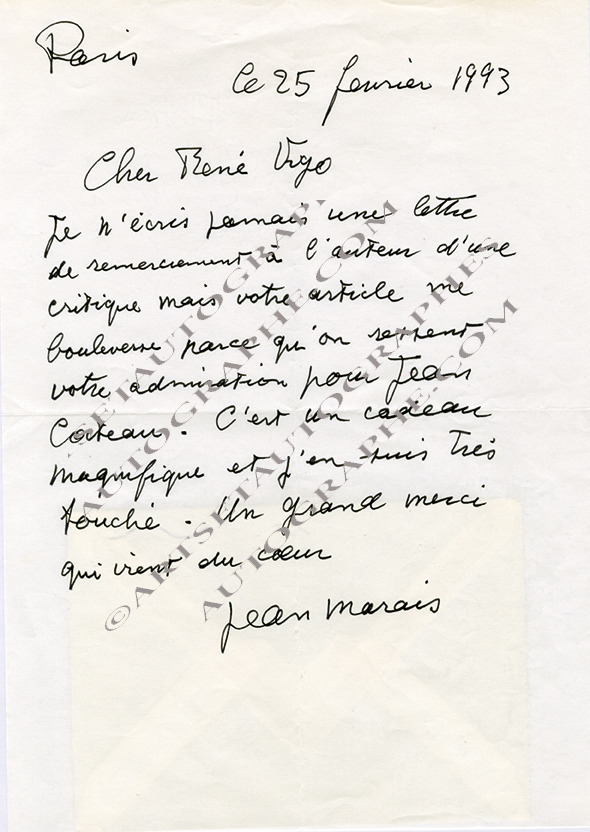 Paris
le 25 février 1993
Cher René Vigo
Je n'écris jamais une lettre
de remerciement à l'auteur d'une
critique mais votre article me
bouleverse parce qu'on ressent
votre admiration pour Jean
Cocteau. C'est un cadeau
magnifique et j'en suis très
touché. Un grand merci
qui vient du cœur
Jean Marais
©ARTSETAUTOGRAPHES.COM
AUTOGRAPHE.COM